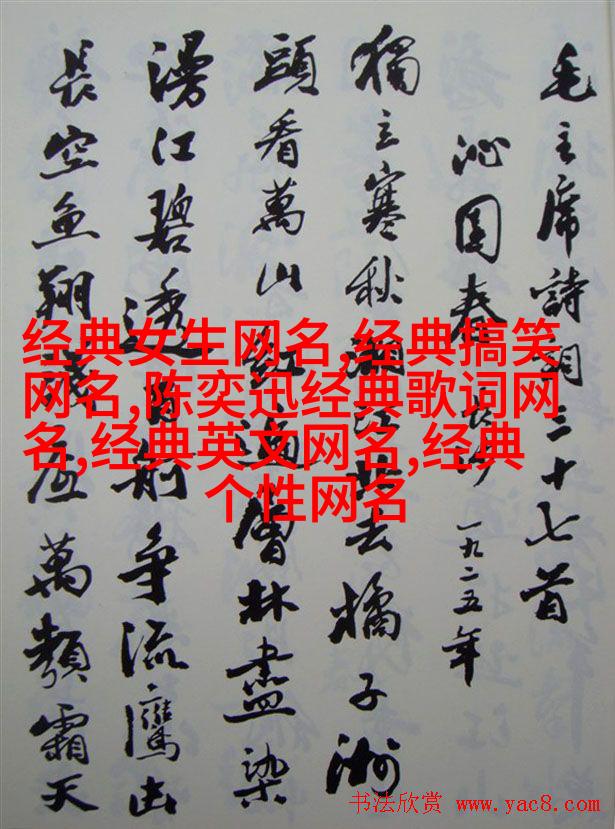 毛主席詩詞三十七首
沁园春 長沙 一九二五年
獨立寒秋湘江北去橘子洲
頭看萬山红遍層林盡染
漫江碧透百舸争流鷹击
長空鱼翔浅底萬類霜天
经典女生网名,经典搞笑
网名,陈奕迅经典歌词网
名,经典英文网名,经典
个性网名
书法欣赏 www.yac8.com